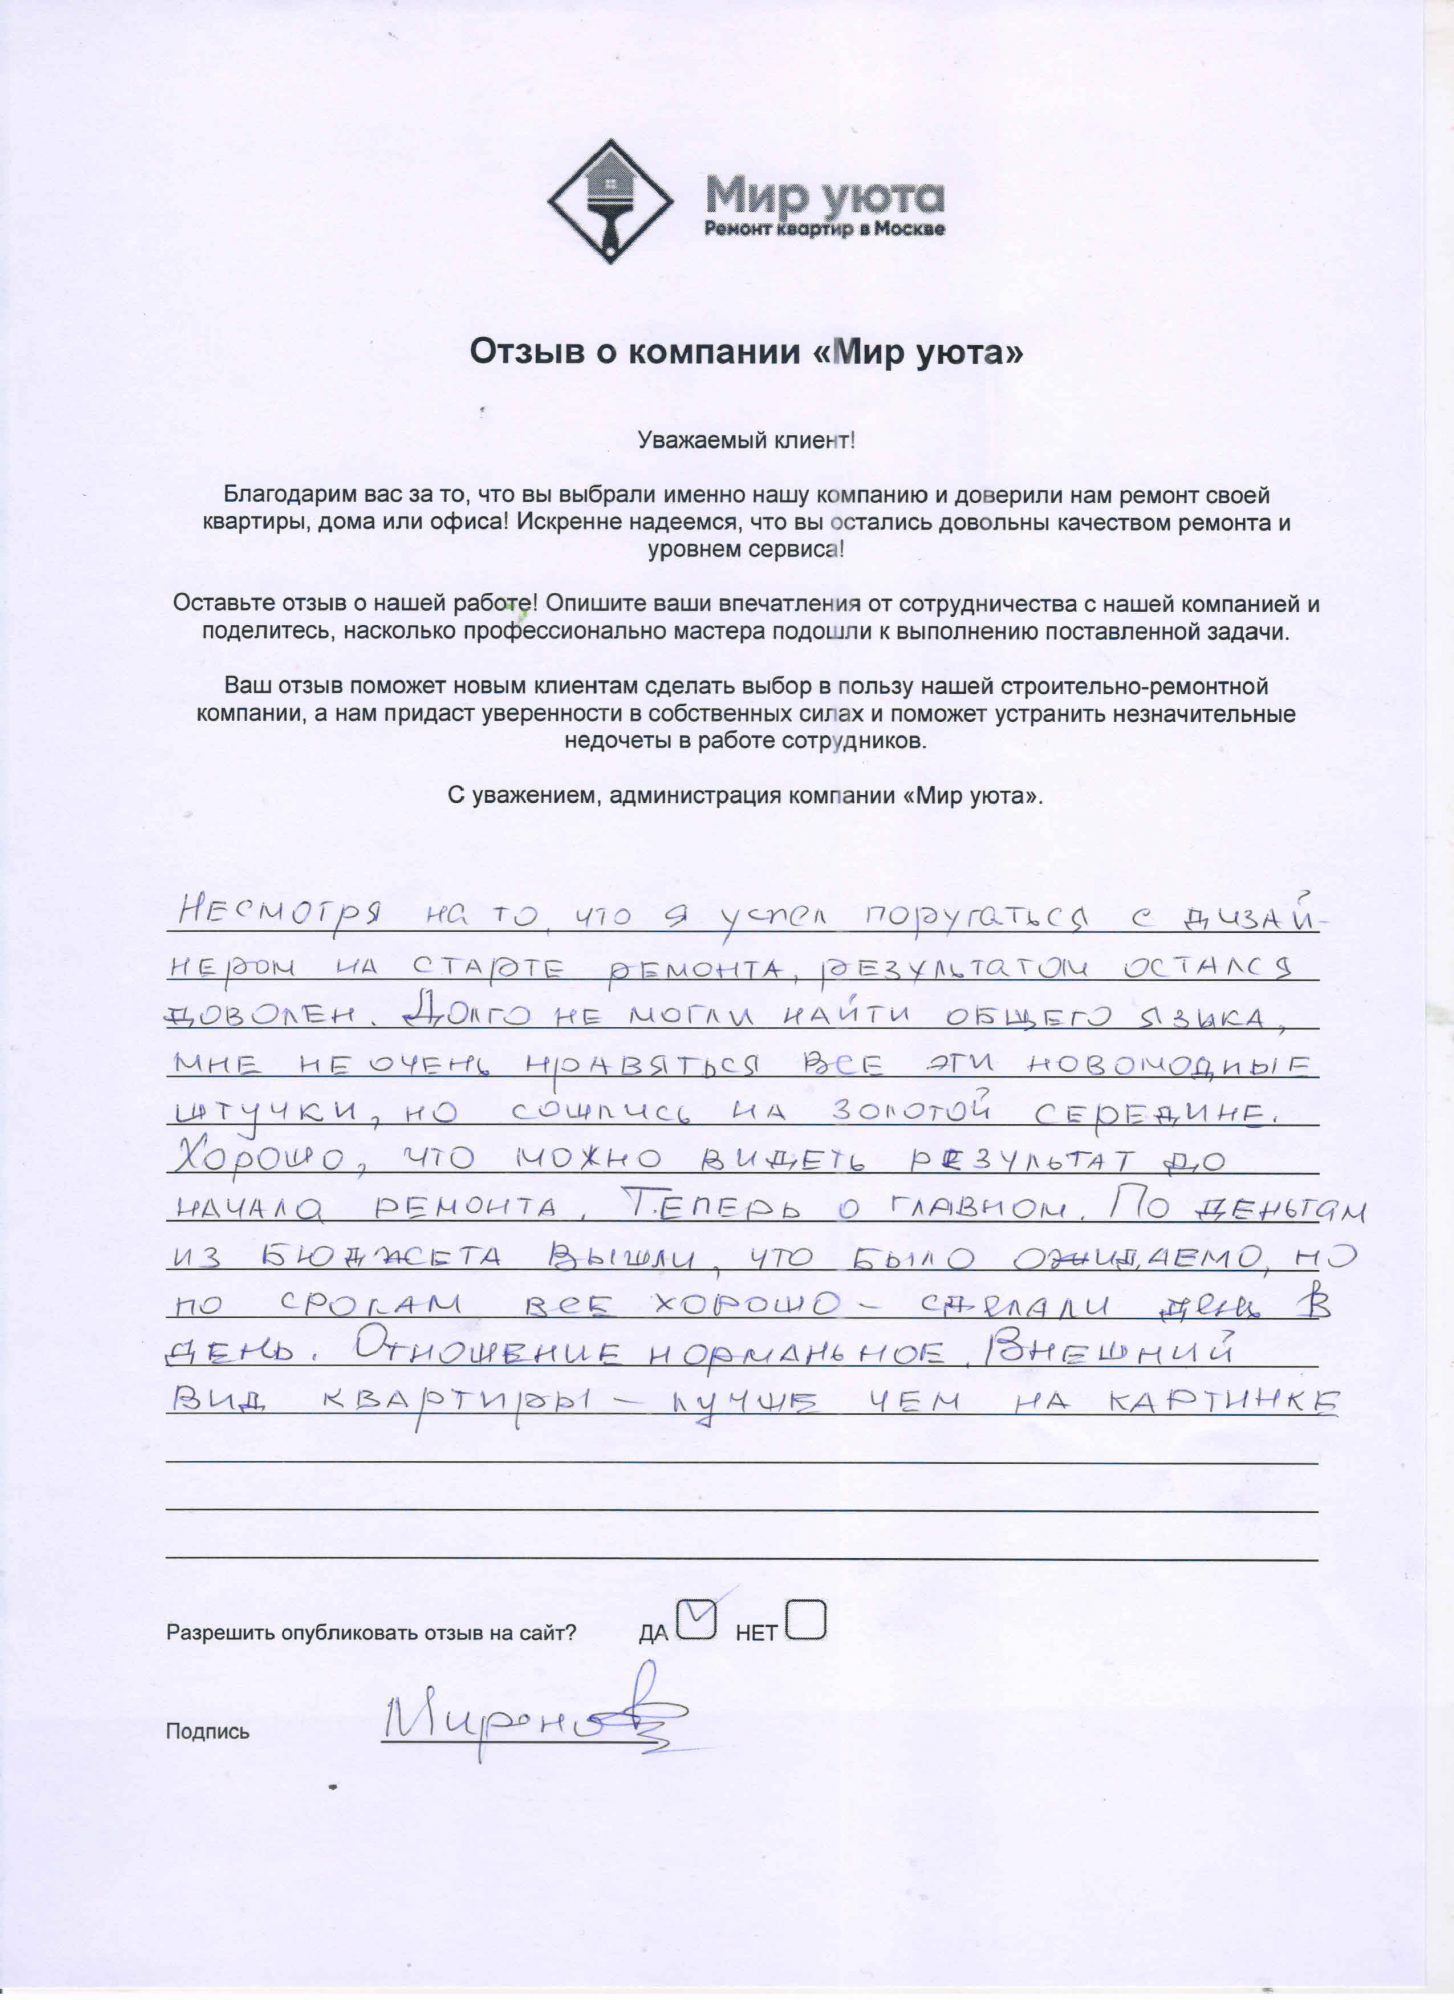 Мир уюта
Ремонт квартир в Москве
Отзыв о компании «Мир уюта»
Уважаемый клиент!
Благодарим вас за то, что вы выбрали именно нашу компанию и доверили нам ремонт своей
квартиры, дома или офиса! Искренне надеемся, что вы остались довольны качеством ремонта и
уровнем сервиса!
Оставьте отзыв о нашей работе! Опишите ваши впечатления от сотрудничества с нашей компанией и
поделитесь, насколько профессионально мастера подошли к выполнению поставленной задачи.
Ваш отзыв поможет новым клиентам сделать выбор в пользу нашей строительно-ремонтной
компании, а нам придаст уверенности в собственных силах и поможет устранить незначительные
недочеты в работе сотрудников.
С уважением, администрация компании «Мир уюта».
Несмотря на то, что я успел поругаться с дизай-
нером на старте ремонта, результатом остался
доволен. Долго не могли найти общего языка,
мне не очень нравяться все эти новомодные
штучки, но сошлись на золотой середине.
Хорошо, что можно видеть результат до
начала ремонта. Теперь о главном. По деньгам
из бюджета вышли, что было ожидаемо, но
по срокам все хорошо – сделали день в
день. Отношение норманьное. Внешний
вид квартиры – лучше чем на картинке
Разрешить опубликовать отзыв на сайт? ДА НЕТ
Подпись Миронов